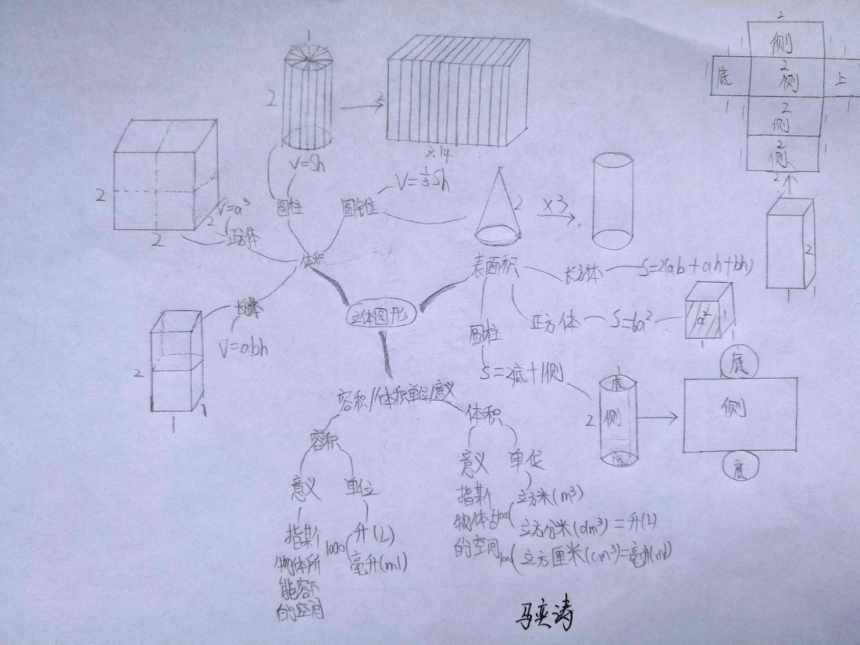 1
2
2
×14
V=Sh
圆柱
V=⅓Sh
圆锥
2
×3
2
2
2
V=a³
正方体
体积
长方体
V=abh
2
1
1
立体图形
表面积
长方体
S=2(ab+ah+bh)
正方体
S=6a²
a²
1
圆柱
S=2底+1侧
底
侧
底
2
底
侧
底
2
侧
底
2
侧
上
2
侧
2
侧
2
2
1
1
容积/体积单位/意义
容积
意义
单位
指某个
物体所
能容下
的空间
1000
升(L)
毫升(ml)
体积
意义
单位
指某个
物体占
的空间
立方米(m³)
立方分米(dm³)=升(L)
立方厘米(cm³)=毫升(ml)
马奕涛